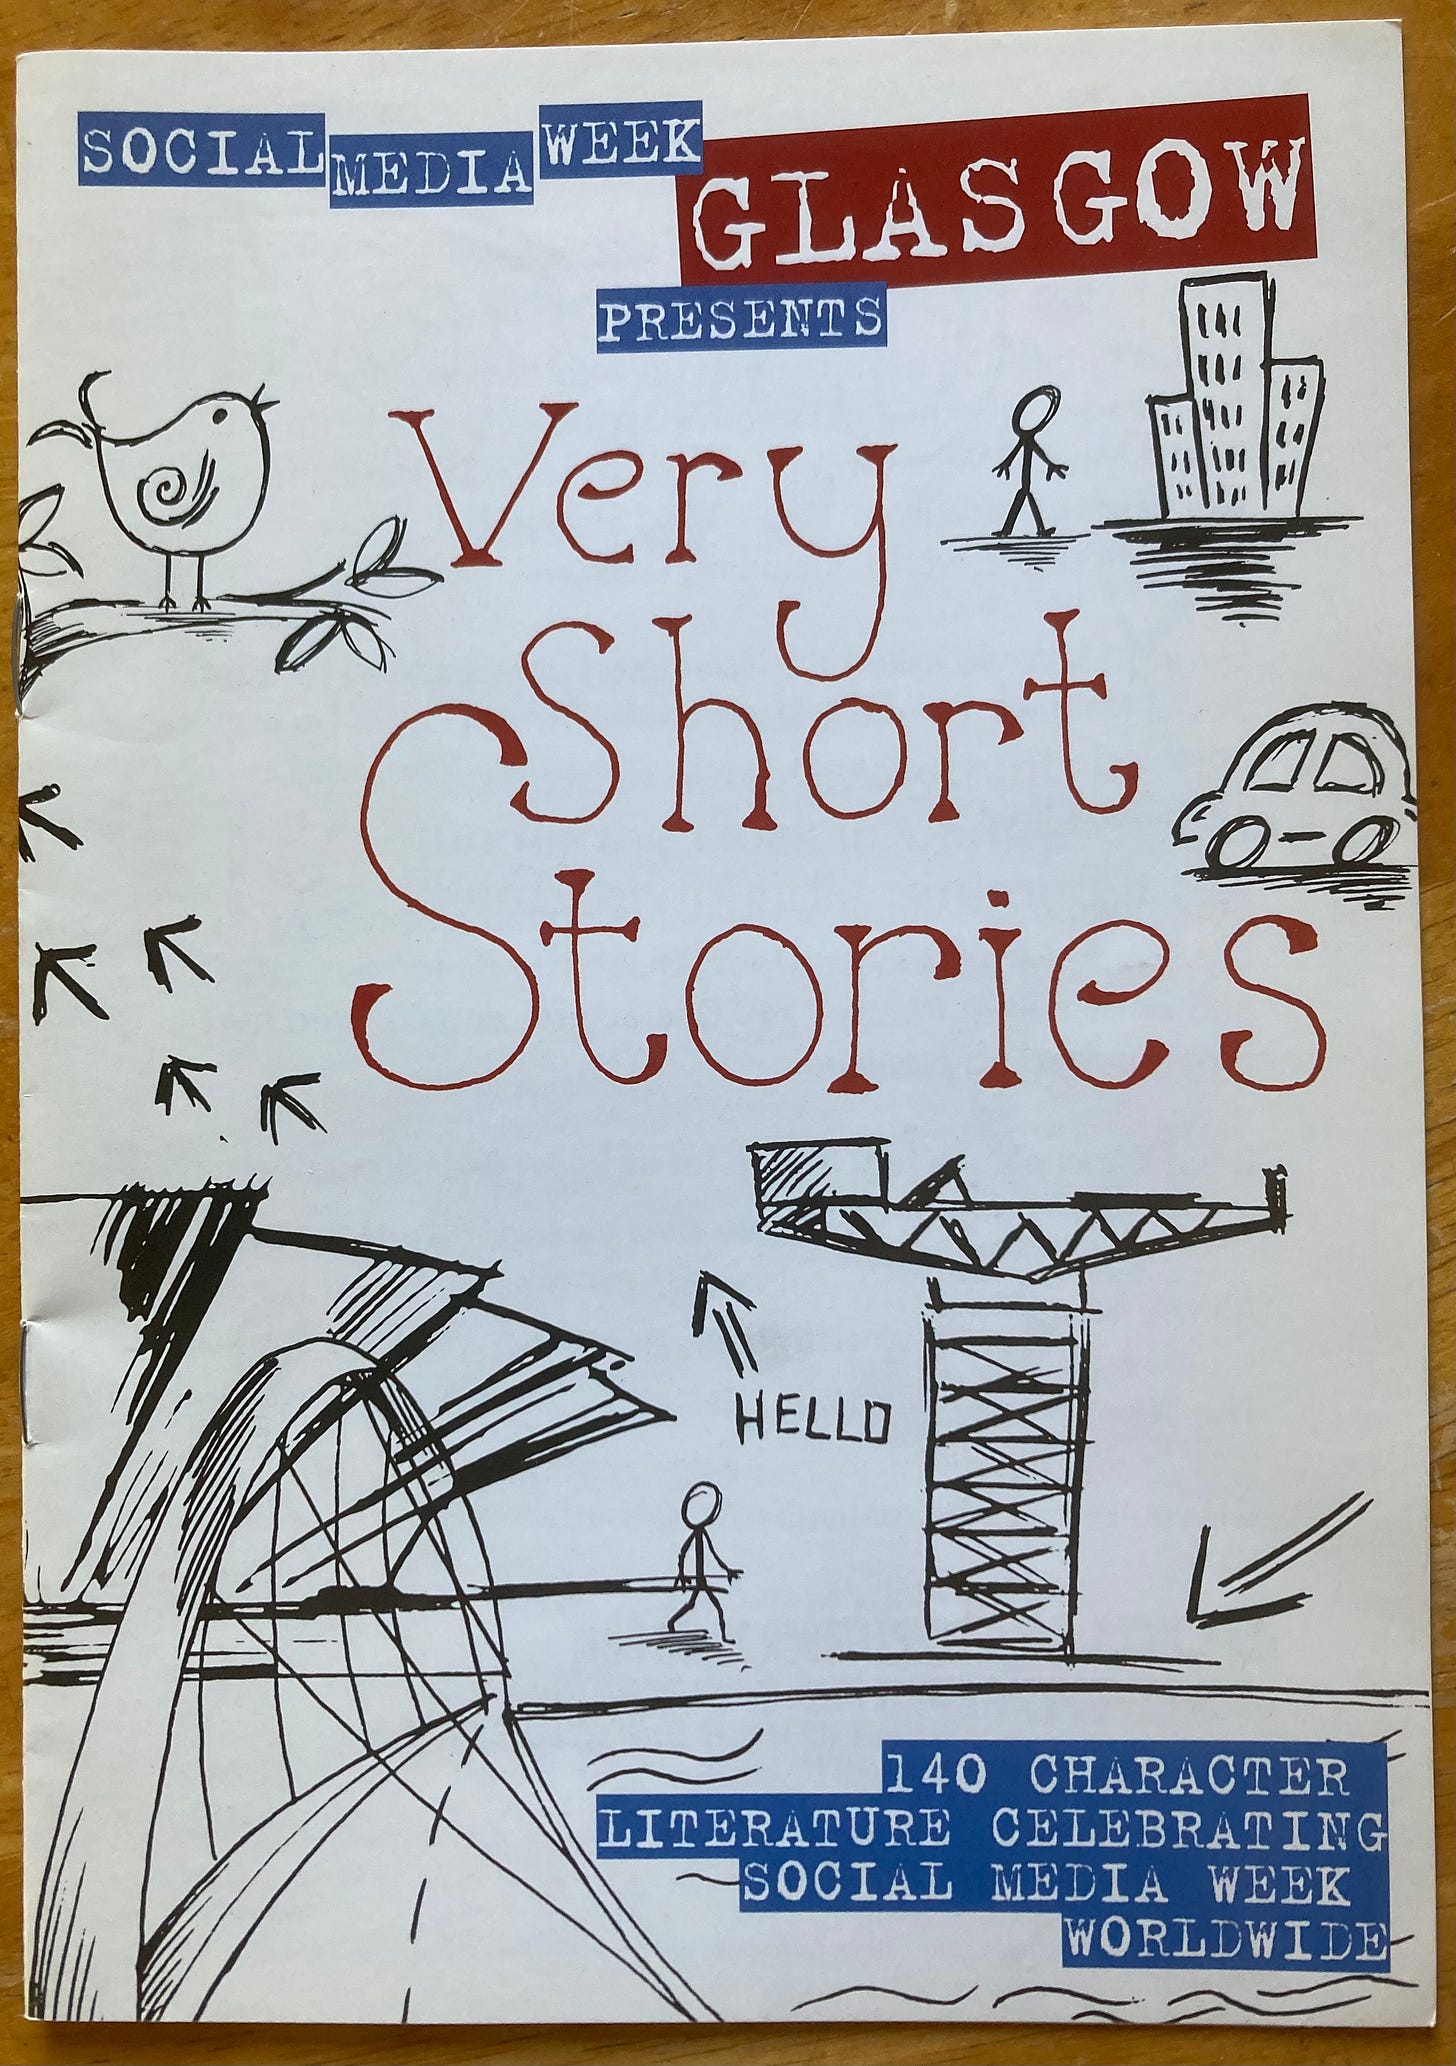 SOCIAL MEDIA WEEK GLASGOW
PRESENTS
Very
Short
Stories
HELLO
140 CHARACTER
LITERATURE CELEBRATING
SOCIAL MEDIA WEEK
WORLDWIDE